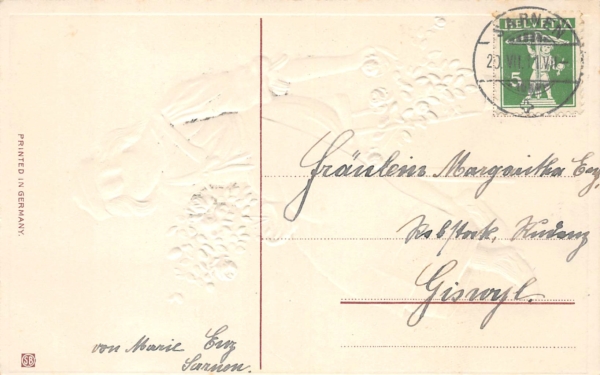 SARNEN
20. VII.
HELVETIA
5
PRINTED IN GERMANY.
Fräulein Margaritha Enz
Rebstock, Rudenz
Giswyl.
von Marie Enz
Sarnen.